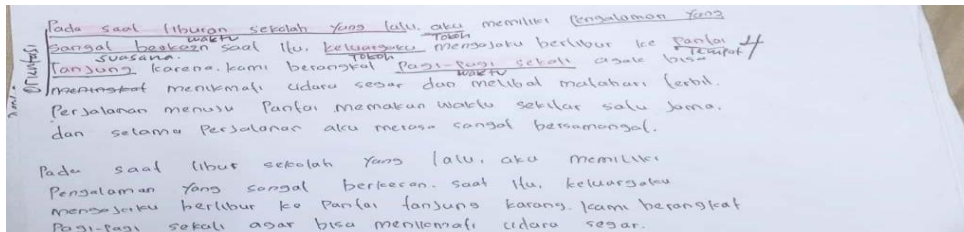 Pada saat liburan sekolah yang lalu, aku memiliki Pengalaman yang
waktu Tokoh
sangat berkesan saat itu, keluargaku mengajaku berlibur ke Pantai 4
suasana. Tokoh Tempat
Tanjung karena. kami berangkat Pagi-Pagi sekali agar bisa
waktu
menikmati udara segar dan melihat matahari terbit.
Perjalanan menuju Pantai memakan waktu sekitar satu jama.
dan selama Perjalanan aku merasa sangat bersamangat.
Pada saat libur sekolah yang lalu. aku memiliki
Pengalaman yang sangat berkesan. saat itu, keluargaku
mengajaku berlibur ke Pantai tanjung karang. kami berangkat
Pagi-Pagi sekali agar bisa menikmati udara segar.